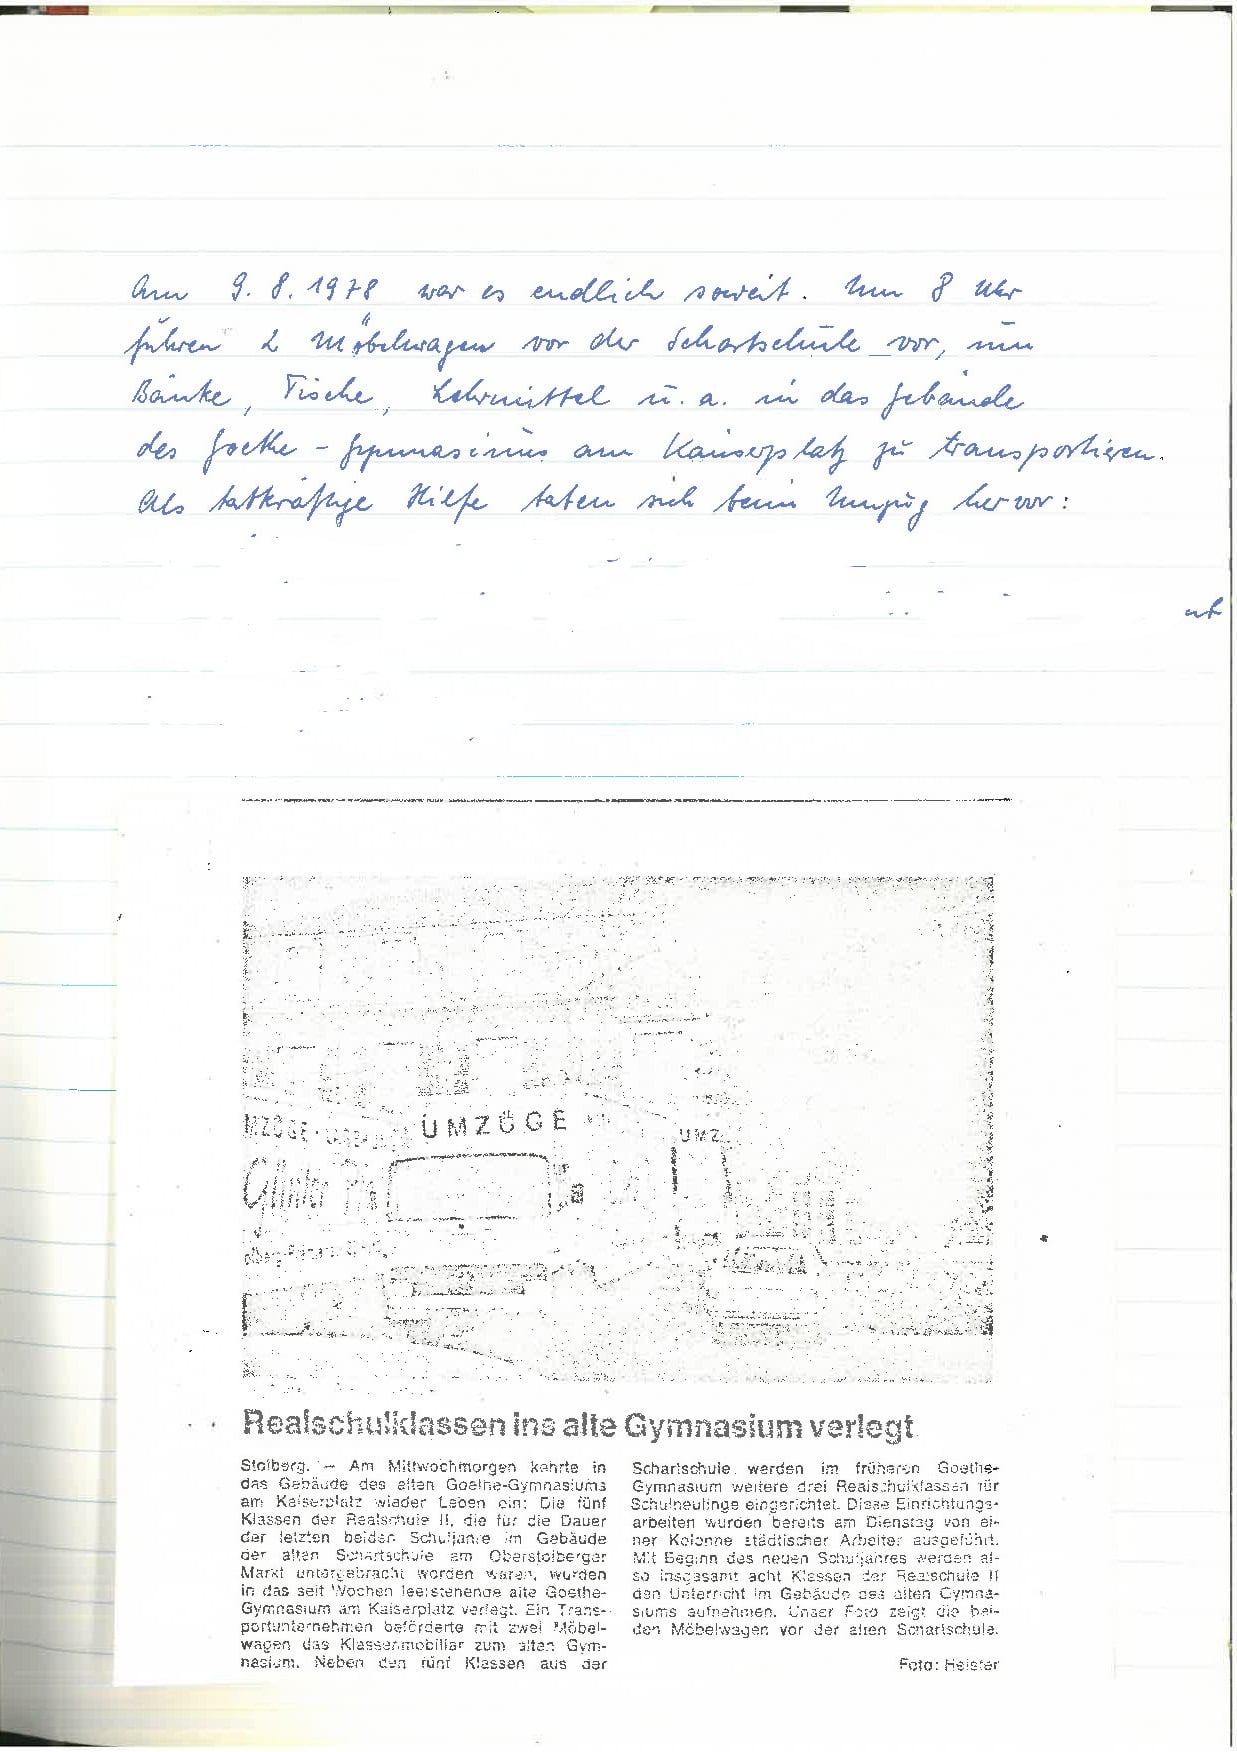 Am 9. 8. 1978 war es endlich soweit. Um 8 Uhr
fuhren 2 Möbelwagen vor der Schartschule vor, um
Bänke, Tische, Lehrmittel u. a. in das Gebäude
des Goethe-Gymnasiums am Kaiserplatz zu transportieren.
Als tatkräftige Hilfe taten sich beim Umzug hervor:
MZÖGE
UMZÜGE
UMZ
Günter
Realschulklassen ins alte Gymnasium verlegt
Stolberg. – Am Mittwochmorgen kehrte in
das Gebäude des alten Goethe-Gymnasiums
am Kaiserplatz wieder Leben ein: Die fünf
Klassen der Realschule II, die für die Dauer
der letzten beiden Schuljahre im Gebäude
der alten Schartschule am Oberstolberger
Markt untergebracht worden waren, wurden
in das seit Wochen leerstehende alte Goethe-
Gymnasium am Kaiserplatz verlegt. Ein Trans-
portunternehmen beförderte mit zwei Möbel-
wagen das Klassenmobiliar zum alten Gym-
nasium. Neben den fünf Klassen aus der
Schartschule werden im früheren Goethe-
Gymnasium weitere drei Realschulklassen für
Schulneulinge eingerichtet. Diese Einrichtungs-
arbeiten wurden bereits am Dienstag von ei-
ner Kolonne städtischer Arbeiter ausgeführt.
Mit Beginn des neuen Schuljahres werden al-
so insgesamt acht Klassen der Realschule II
den Unterricht im Gebäude des alten Gymna-
siums aufnehmen. Unser Foto zeigt die bei-
den Möbelwagen vor der alten Schartschule.
Foto: Heister